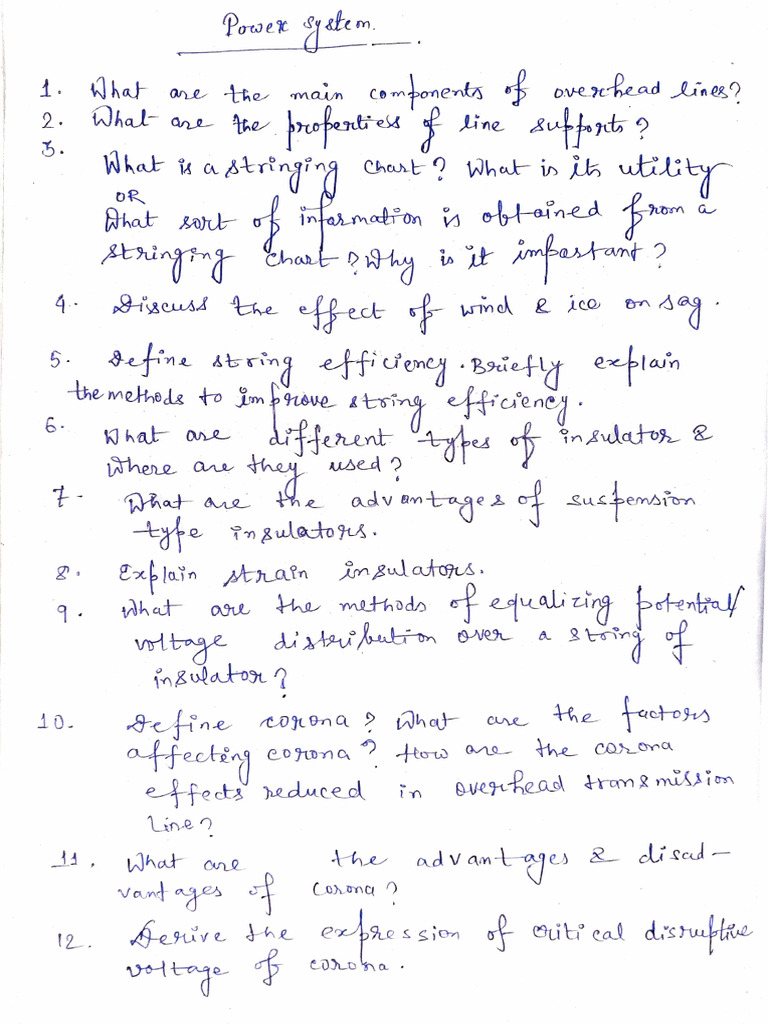 Power system.
1. What are the main components of overhead lines?
2. What are the propertiess of line supports?
3.
What is a stringing chart? What is its utility
OR
What sort of information is obtained from a
stringing chart? Why is it important?
4. Discuss the effect of wind & ice on sag.
5. Define string efficiency. Briefly explain
the methods to improve string efficiency.
6. What are different types of insulator &
where are they used?
7- What are the advantages of suspension
type insulators.
8. Explain strain insulators.
9. What are the methods of equalizing potential/
voltage distribution over a string of
insulator?
10. Define corona? What are the factors
affecting corona? How are the corona
effects reduced in overhead transmission
line?
11. What are the advantages & disad-
vantages of corona?
12. Derive the expression of critical disruptive
voltage of corona.